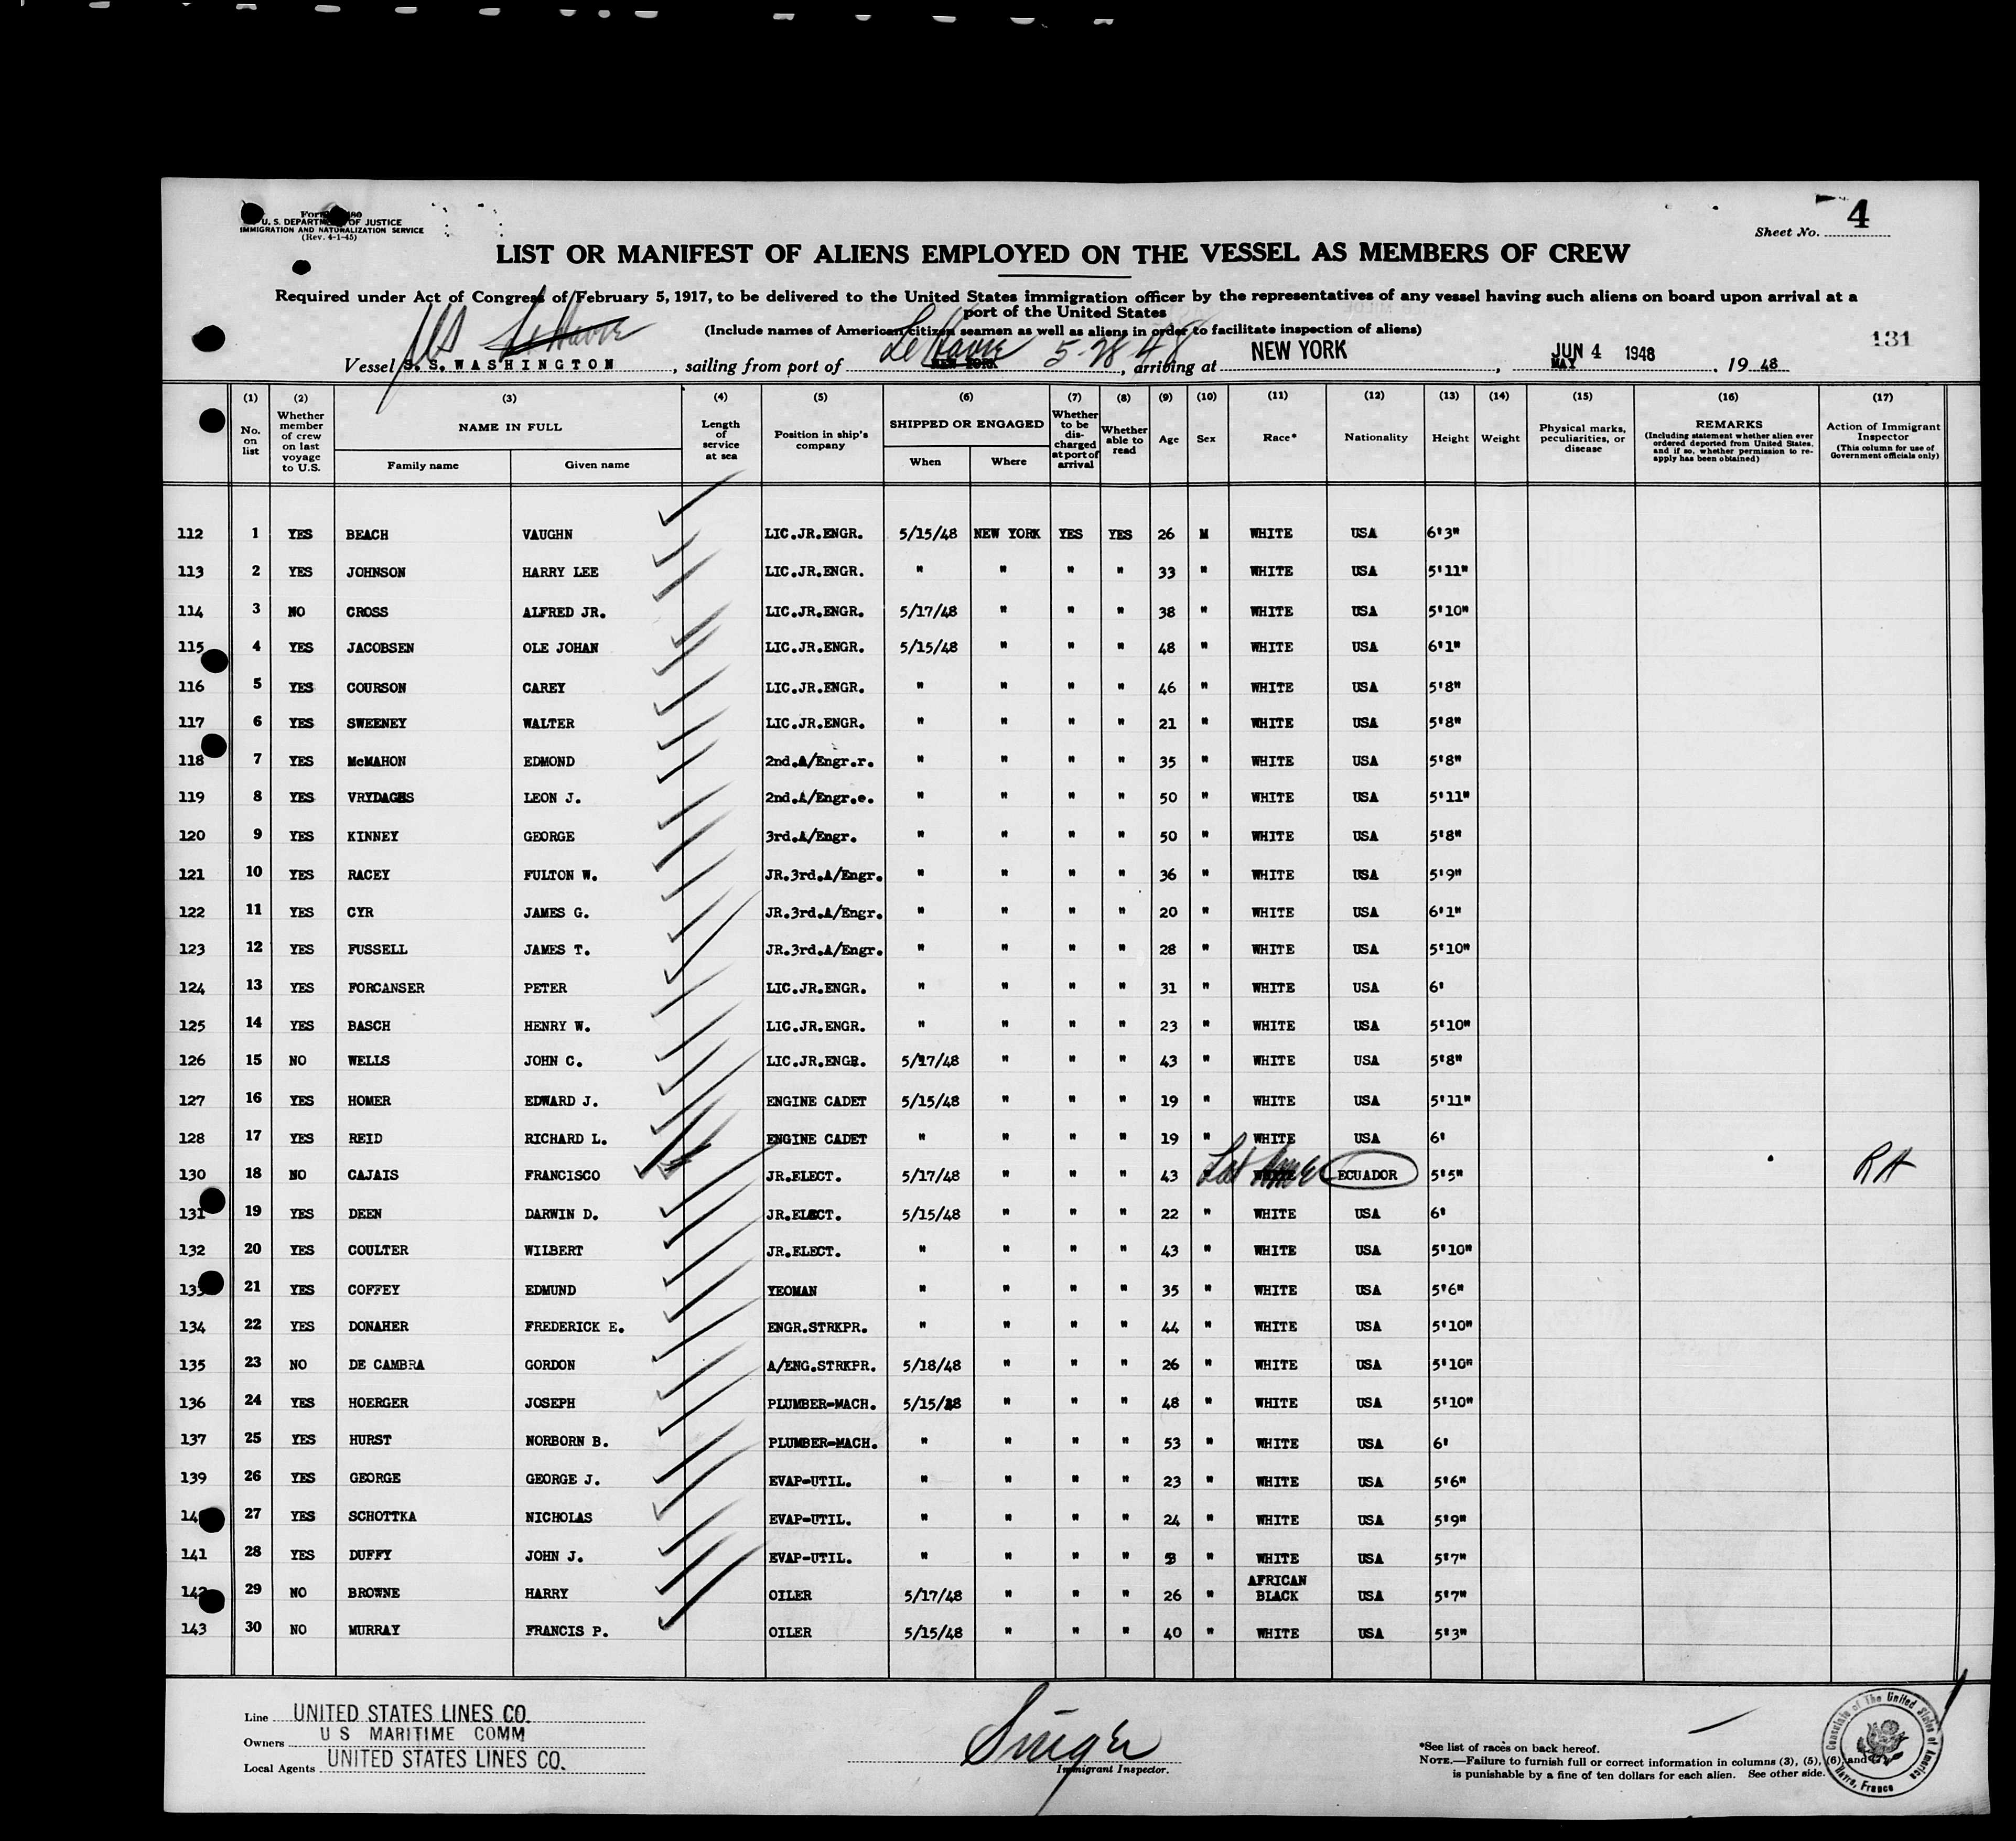 Form I-480
U. S. DEPARTMENT OF JUSTICE
IMMIGRATION AND NATURALIZATION SERVICE
(Rev. 4-1-45)
Sheet No. 4
LIST OR MANIFEST OF ALIENS EMPLOYED ON THE VESSEL AS MEMBERS OF CREW
Required under Act of Congress of February 5, 1917, to be delivered to the United States immigration officer by the representatives of any vessel having such aliens on board upon arrival at a
port of the United States
(Include names of American citizen seamen as well as aliens in order to facilitate inspection of aliens)
131
Le Havre
Vessel S. S. WASHINGTON, sailing from port of NEW YORK Le Havre 5-28-48, arriving at NEW YORK, MAY JUN 4 1948, 19 48
(1) (2) (3) (4) (5) (6) (7) (8) (9) (10) (11) (12) (13) (14) (15) (16) (17)
No. on list
Whether member of crew on last voyage to U.S.
NAME IN FULL
Family name
Given name
Length of service at sea
Position in ship's company
SHIPPED OR ENGAGED
When
Where
Whether to be discharged at port of arrival
Whether able to read
Age
Sex
Race*
Nationality
Height
Weight
Physical marks, peculiarities, or disease
REMARKS
(Including statement whether alien ever ordered deported from United States, and if so, whether permission to re-apply has been obtained)
Action of Immigrant Inspector
(This column for use of Government officials only)
112 1 YES BEACH VAUGHN LIC.JR.ENGR. 5/15/48 NEW YORK YES YES 26 M WHITE USA 6'3"
113 2 YES JOHNSON HARRY LEE LIC.JR.ENGR. " " " " 33 " WHITE USA 5'11"
114 3 NO CROSS ALFRED JR. LIC.JR.ENGR. 5/17/48 " " " 38 " WHITE USA 5'10"
115 4 YES JACOBSEN OLE JOHAN LIC.JR.ENGR. 5/15/48 " " " 48 " WHITE USA 6'1"
116 5 YES COURSON CAREY LIC.JR.ENGR. " " " " 46 " WHITE USA 5'8"
117 6 YES SWEENEY WALTER LIC.JR.ENGR. " " " " 21 " WHITE USA 5'8"
118 7 YES McMAHON EDMOND 2nd.A/Engr.r. " " " " 35 " WHITE USA 5'8"
119 8 YES VRYDAGHS LEON J. 2nd.A/Engr.e. " " " " 50 " WHITE USA 5'11"
120 9 YES KINNEY GEORGE 3rd.A/Engr. " " " " 50 " WHITE USA 5'8"
121 10 YES RACEY FULTON W. JR.3rd.A/Engr. " " " " 36 " WHITE USA 5'9"
122 11 YES CYR JAMES G. JR.3rd.A/Engr. " " " " 20 " WHITE USA 6'1"
123 12 YES FUSSELL JAMES T. JR.3rd.A/Engr. " " " " 28 " WHITE USA 5'10"
124 13 YES FORCANSER PETER LIC.JR.ENGR. " " " " 31 " WHITE USA 6'
125 14 YES BASCH HENRY W. LIC.JR.ENGR. " " " " 23 " WHITE USA 5'10"
126 15 NO WELLS JOHN C. LIC.JR.ENGR. 5/17/48 " " " 43 " WHITE USA 5'8"
127 16 YES HOMER EDWARD J. ENGINE CADET 5/15/48 " " " 19 " WHITE USA 5'11"
128 17 YES REID RICHARD L. ENGINE CADET " " " " 19 " WHITE USA 6'
130 18 NO CAJAIS FRANCISCO JR.ELECT. 5/17/48 " " " 43 " Lat Ame ECUADOR 5'5" RH
131 19 YES DEEN DARWIN D. JR.ELECT. 5/15/48 " " " 22 " WHITE USA 6'
132 20 YES COULTER WILBERT JR.ELECT. " " " " 43 " WHITE USA 5'10"
133 21 YES COFFEY EDMUND YEOMAN " " " " 35 " WHITE USA 5'6"
134 22 YES DONAHER FREDERICK E. ENGR.STRKPR. " " " " 44 " WHITE USA 5'10"
135 23 NO DE CAMBRA GORDON A/ENG.STRKPR. 5/18/48 " " " 26 " WHITE USA 5'10"
136 24 YES HOERGER JOSEPH PLUMBER-MACH. 5/15/48 " " " 48 " WHITE USA 5'10"
137 25 YES HURST NORBORN B. PLUMBER-MACH. " " " " 53 " WHITE USA 6'
139 26 YES GEORGE GEORGE J. EVAP-UTIL. " " " " 23 " WHITE USA 5'6"
27 YES SCHOTTKA NICHOLAS EVAP-UTIL. " " " " 24 " WHITE USA 5'9"
141 28 YES DUFFY JOHN J. EVAP-UTIL. " " " " " WHITE USA 5'7"
142 29 NO BROWNE HARRY OILER 5/17/48 " " " 26 " AFRICAN BLACK USA 5'7"
143 30 NO MURRAY FRANCIS P. OILER 5/15/48 " " " 40 " WHITE USA 5'3"
Line UNITED STATES LINES CO.
Owners U S MARITIME COMM
Local Agents UNITED STATES LINES CO.
Singer
Immigrant Inspector.
*See list of races on back hereof.
NOTE.—Failure to furnish full or correct information in columns (3), (5), (6), and (7) is punishable by a fine of ten dollars for each alien. See other side.
Consulate of The United States of America
Havre, France